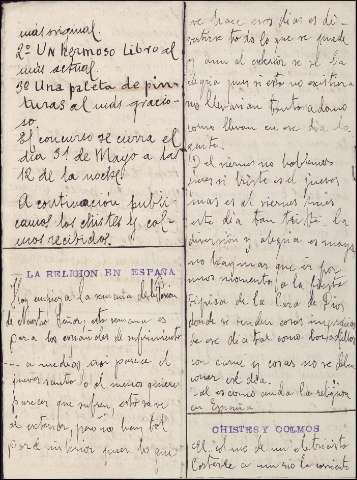 más original
2º Un hermoso libro al
más actual.
3º Una paleta de pin-
turas al más gracio-
so.
El concurso se cierra el
dia 31 de Mayo a las
12 de la noche.
A continuación publi-
camos los chistes y col-
mos recibidos.
LA RELIGION EN ESPAÑA
Hoy empieza la semana de
de Nuestro Señor, esta semana es
para los españoles de sufrimiento
a medias, asi parece el
jueves santo o al menos quieren
parecer que sufren, esto se ve
al exterior, pero no han
por de interior pues lo que
se hace esos dias es di-
vertirse todo lo que se puede
y aun el exterior se ve la
alegria pues si esto no existiera
no llevarian tanto adorno
como llevan en ese dia
santo.
Del viernes no hablamos
pues si triste es el jueves
mas es el viernes pues
este dia tan triste la
diversión y alegria es mayor
no
momento, a la fiesta
de la Cara de Dios
donde se venden cosas
de ese dia tal como bocadillos
con carne y cosas no se deben
comer ese dia.
asi es como anda la religion
en España
CHISTES Y COLMOS
El colmo de un eletricista
Cortarle a un rio la corriente